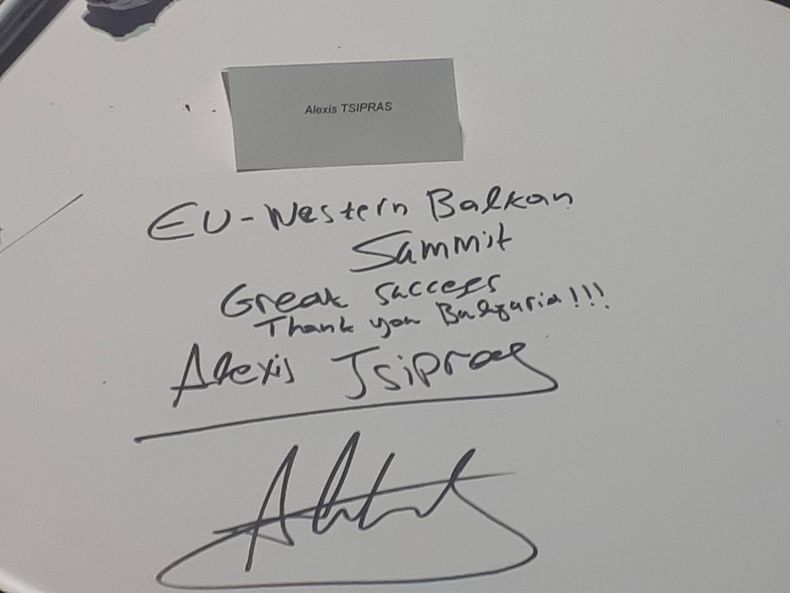 Alexis TSIPRAS
EU-Western Balkan
Sammit
Great success
Thank you Bulgaria!!!
Alexis Tsipras